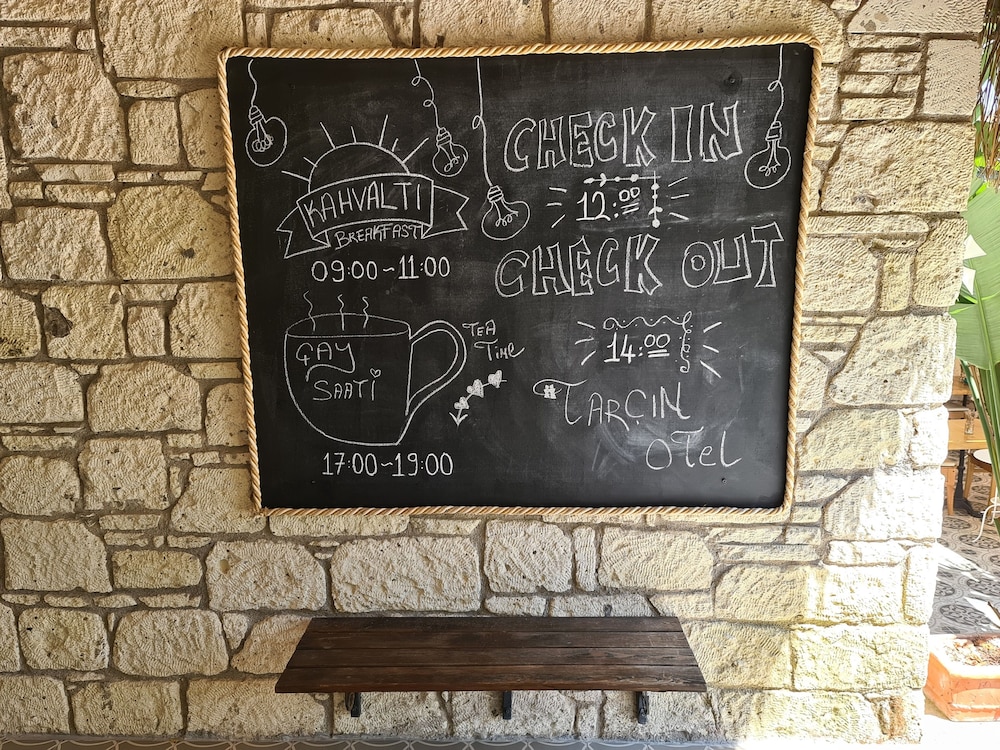 KAHVALTI
BREAKFAST
09:00~11:00
ÇAY
SAATİ
TEA
TIME
17:00~19:00
CHECK IN
12:00
CHECK OUT
14:00
#TARÇIN
OTEL